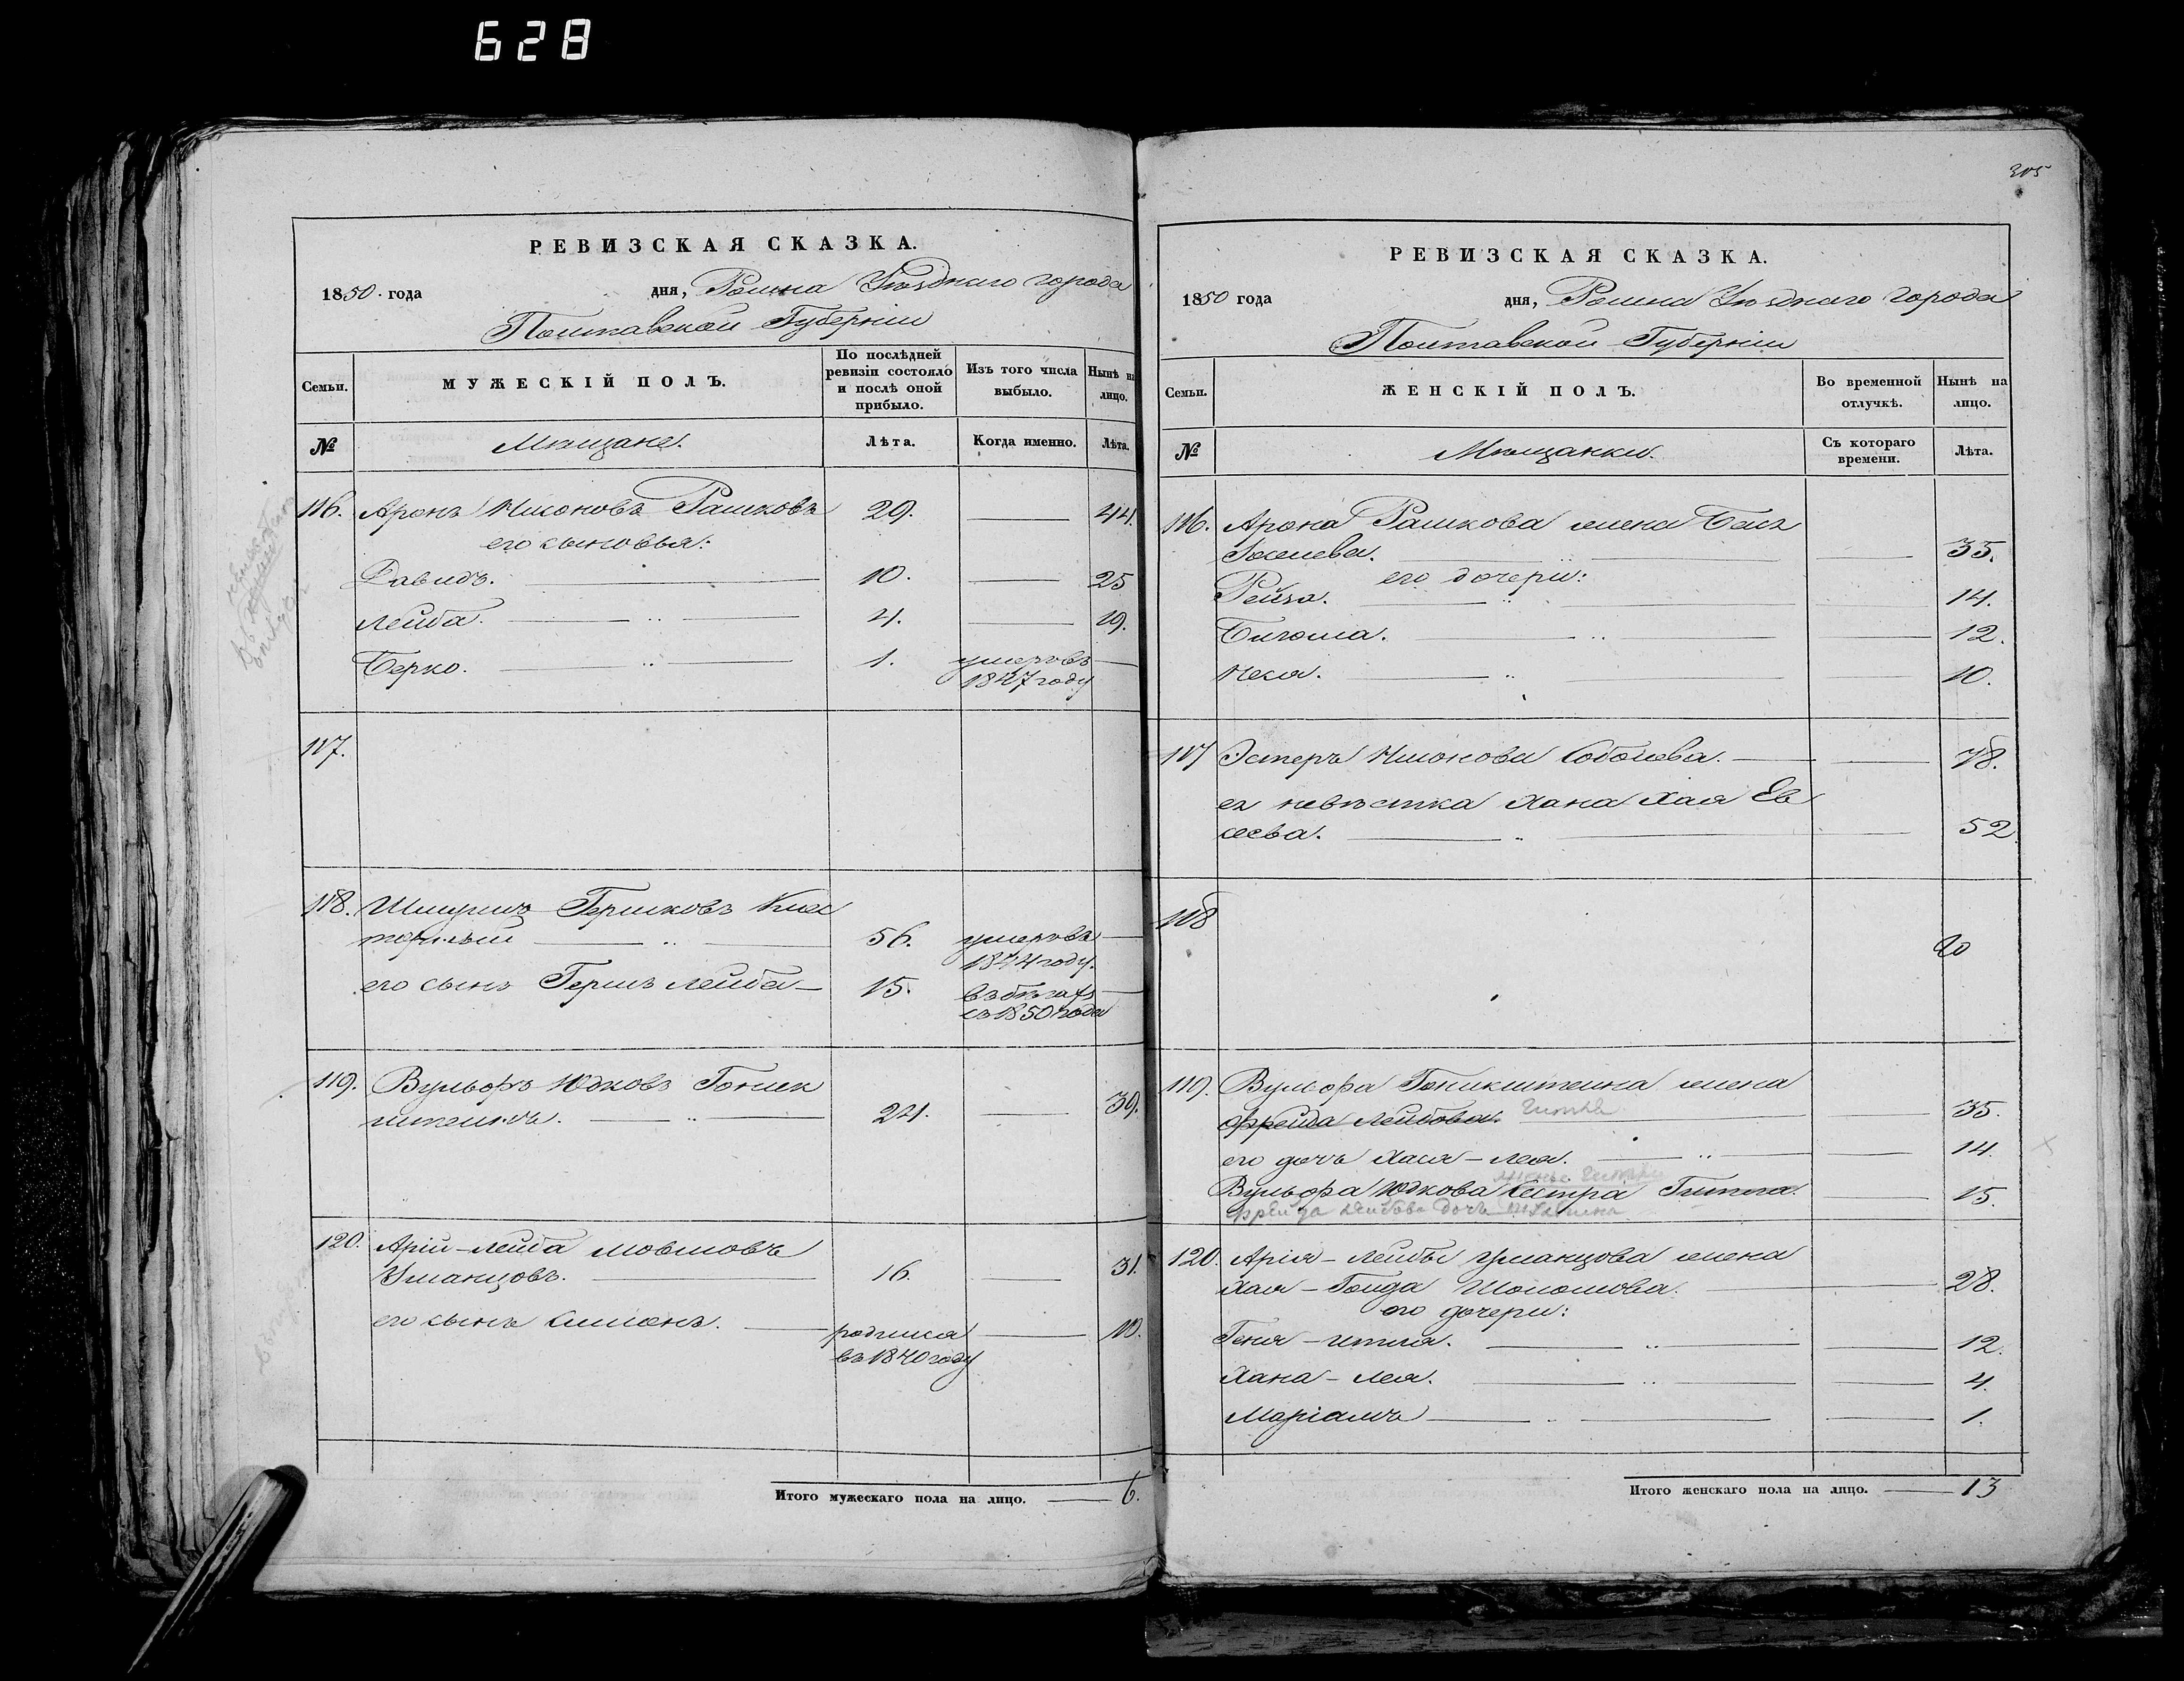 628
РЕВИЗСКАЯ СКАЗКА.
1850. года дня, Ромна Уѣзднаго города
Полтавской Губерніи
Семьи. МУЖЕСКІЙ ПОЛЪ. По послѣдней ревизіи состояло и послѣ оной прибыло. Изъ того числа выбыло. Нынѣ на лицо.
№ Мѣщане. Лѣта. Когда именно. Лѣта.
116. Аронъ Нисоновъ Рашковъ 29. 44.
его сыновья:
Давидъ. 10. 25
Лейба. 4. 19.
Берко. 1. умеръ въ
1847 году
117.
118. Шмуилъ Гершковъ
56. умеръ въ
1844 году.
его сынъ Гершъ Лейба 15. въ бѣгахъ
съ 1850 года
119. Вульфъ Юдковъ Гоник
штейнъ. 24. 39.
120. Арій-Лейба Мовшовъ
Уманцовъ. 16. 31.
его сынъ Симонъ. родился 10.
въ 1840 году
Итого мужескаго пола на лицо. 6.
305
РЕВИЗСКАЯ СКАЗКА.
1850 года дня, Ромна Уѣзднаго города
Полтавской Губерніи
Семьи. ЖЕНСКІЙ ПОЛЪ. Во временной отлучкѣ. Нынѣ на лицо.
№ Мѣщанки. Съ котораго времени. Лѣта.
116. Арона Рашкова жена
35.
его дочери:
Рейза. 14.
12.
Неся. 10.
117 Эстеръ Нисонова Соболева. 78.
ея невѣстка Хана Хая Ев
сеева. 52
118
119. Вульфа Гоникштейна жена
Фрейда Лейбова. 35.
его дочь Хася-Лея. 14.
Вульфа Юдкова сестра Гитля. 15.
120. Арія-Лейбы Уманцова жена
Хая-Гольда Шоломова. 28.
его дочери:
Геня-Итля. 12.
Хана-Лея. 4.
Маріамъ 1.
Итого женскаго пола на лицо. 13